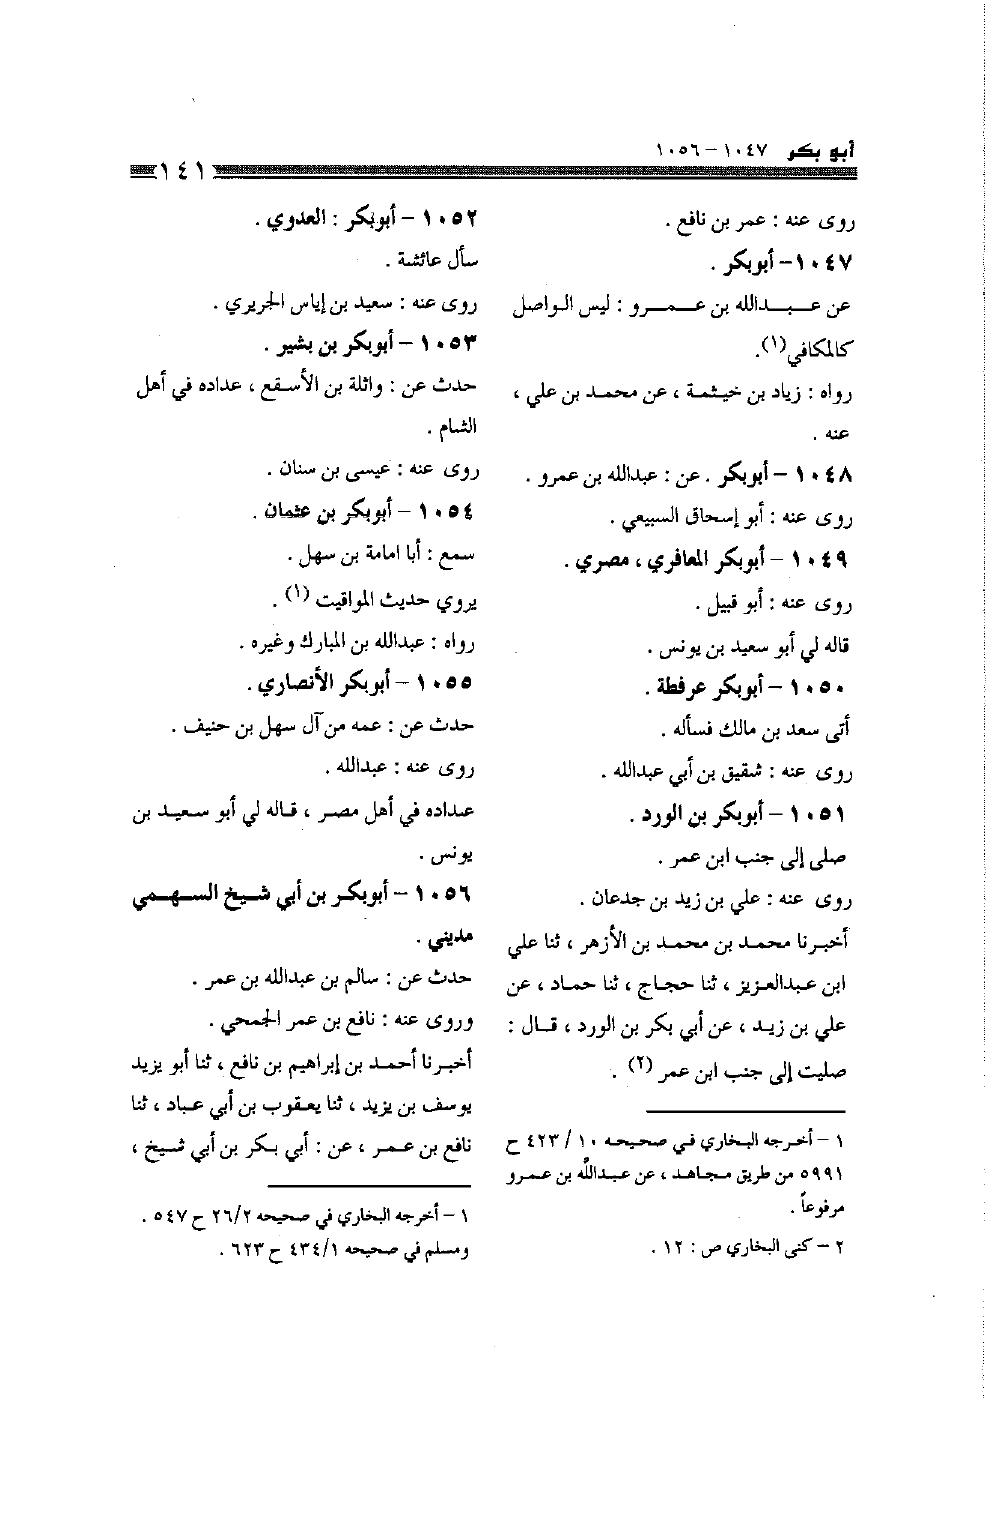 أبو بكر ١٠٤٧ – ١٠٥٦
١٤١
روى عنه : عمر بن نافع .
١٠٤٧ – أبوبكر .
عن عبدالله بن عمرو : ليس الواصل
كالمكافي(١).
رواه : زياد بن خيثمة ، عن محمد بن علي ،
عنه .
١٠٤٨ – أبوبكر . عن : عبدالله بن عمرو .
روى عنه : أبو إسحاق السبيعي .
١٠٤٩ – أبوبكر المعافري ، مصري .
روى عنه : أبو قبيل .
قاله لي أبو سعيد بن يونس .
١٠٥٠ – أبوبكر عرفطة .
أتى سعد بن مالك فسأله .
روى عنه : شقيق بن أبي عبدالله .
١٠٥١ – أبوبكر بن الورد .
صلى إلى جنب ابن عمر .
روى عنه : علي بن زيد بن جدعان .
أخبرنا محمد بن محمد بن الأزهر ، ثنا علي
ابن عبدالعزيز ، ثنا حجاج ، ثنا حماد ، عن
علي بن زيد ، عن أبي بكر بن الورد ، قال :
صليت إلى جنب ابن عمر (٢) .
١ – أخرجه البخاري في صحيحه ١٠ / ٤٢٣ ح
٥٩٩١ من طريق مجاهد ، عن عبدالله بن عمرو
مرفوعاً .
٢ – كنى البخاري ص : ١٢ .
١٠٥٢ – أبوبكر : العدوي .
سأل عائشة .
روى عنه : سعيد بن إياس الجريري .
١٠٥٣ – أبوبكر بن بشير .
حدث عن : واثلة بن الأسقع ، عداده في أهل
الشام .
روى عنه : عيسى بن سنان .
١٠٥٤ – أبوبكر بن عثمان .
سمع : أبا امامة بن سهل .
يروي حديث المواقيت (١) .
رواه : عبدالله بن المبارك وغيره .
١٠٥٥ – أبوبكر الأنصاري .
حدث عن : عمه من آل سهل بن حنيف .
روى عنه : عبدالله .
عداده في أهل مصر ، قاله لي أبو سعيد بن
يونس .
١٠٥٦ – أبوبكر بن أبي شيخ السهمي
مديني .
حدث عن : سالم بن عبدالله بن عمر .
وروى عنه : نافع بن عمر الجمحي .
أخبرنا أحمد بن إبراهيم بن نافع ، ثنا أبو يزيد
يوسف بن يزيد ، ثنا يعقوب بن أبي عباد ، ثنا
نافع بن عمر ، عن : أبي بكر بن أبي شيخ ،
١ – أخرجه البخاري في صحيحه ٢٦/٢ ح ٥٤٧ .
ومسلم في صحيحه ٤٣٤/١ ح ٦٢٣ .